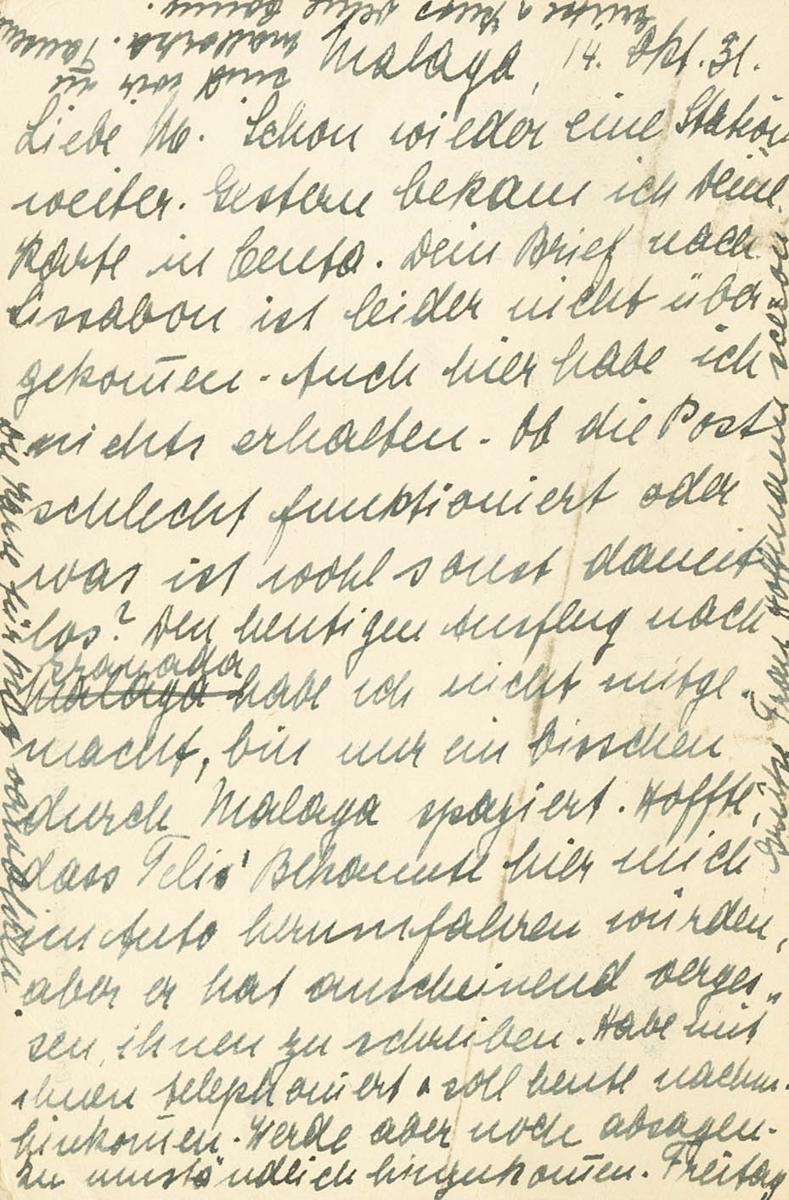 Malaga, 14. Okt. 31.
Liebe M. Schon wieder eine Station
weiter. Gestern bekam ich Deine
Karte in Ceuta. Dein Brief nach
Lissabon ist leider nicht über-
gekom̄en. Auch hier habe ich
nichts erhalten. Ob die Post
schlecht funktioniert oder
was ist wohl sonst damit
los? Den heutigen Ausflug nach
Granada
Malaga habe ich nicht mitge-
macht, bin nur ein bisschen
durch Malaga spaziert. Hoffte,
dass Felix' Bekannte hier mich
im Auto herumfahren würden,
aber er hat anscheinend verges-
sen, ihnen zu schreiben. Habe mit
ihnen telephoniert & soll heute nachm.
hinkom̄en. Werde aber noch absagen.
Zu umständlich hinzukom̄en. Freitag
sind wir in
Mallorca.
Grüsse & Kuss
Die Karte für
Grüsse Frau Hoffmann